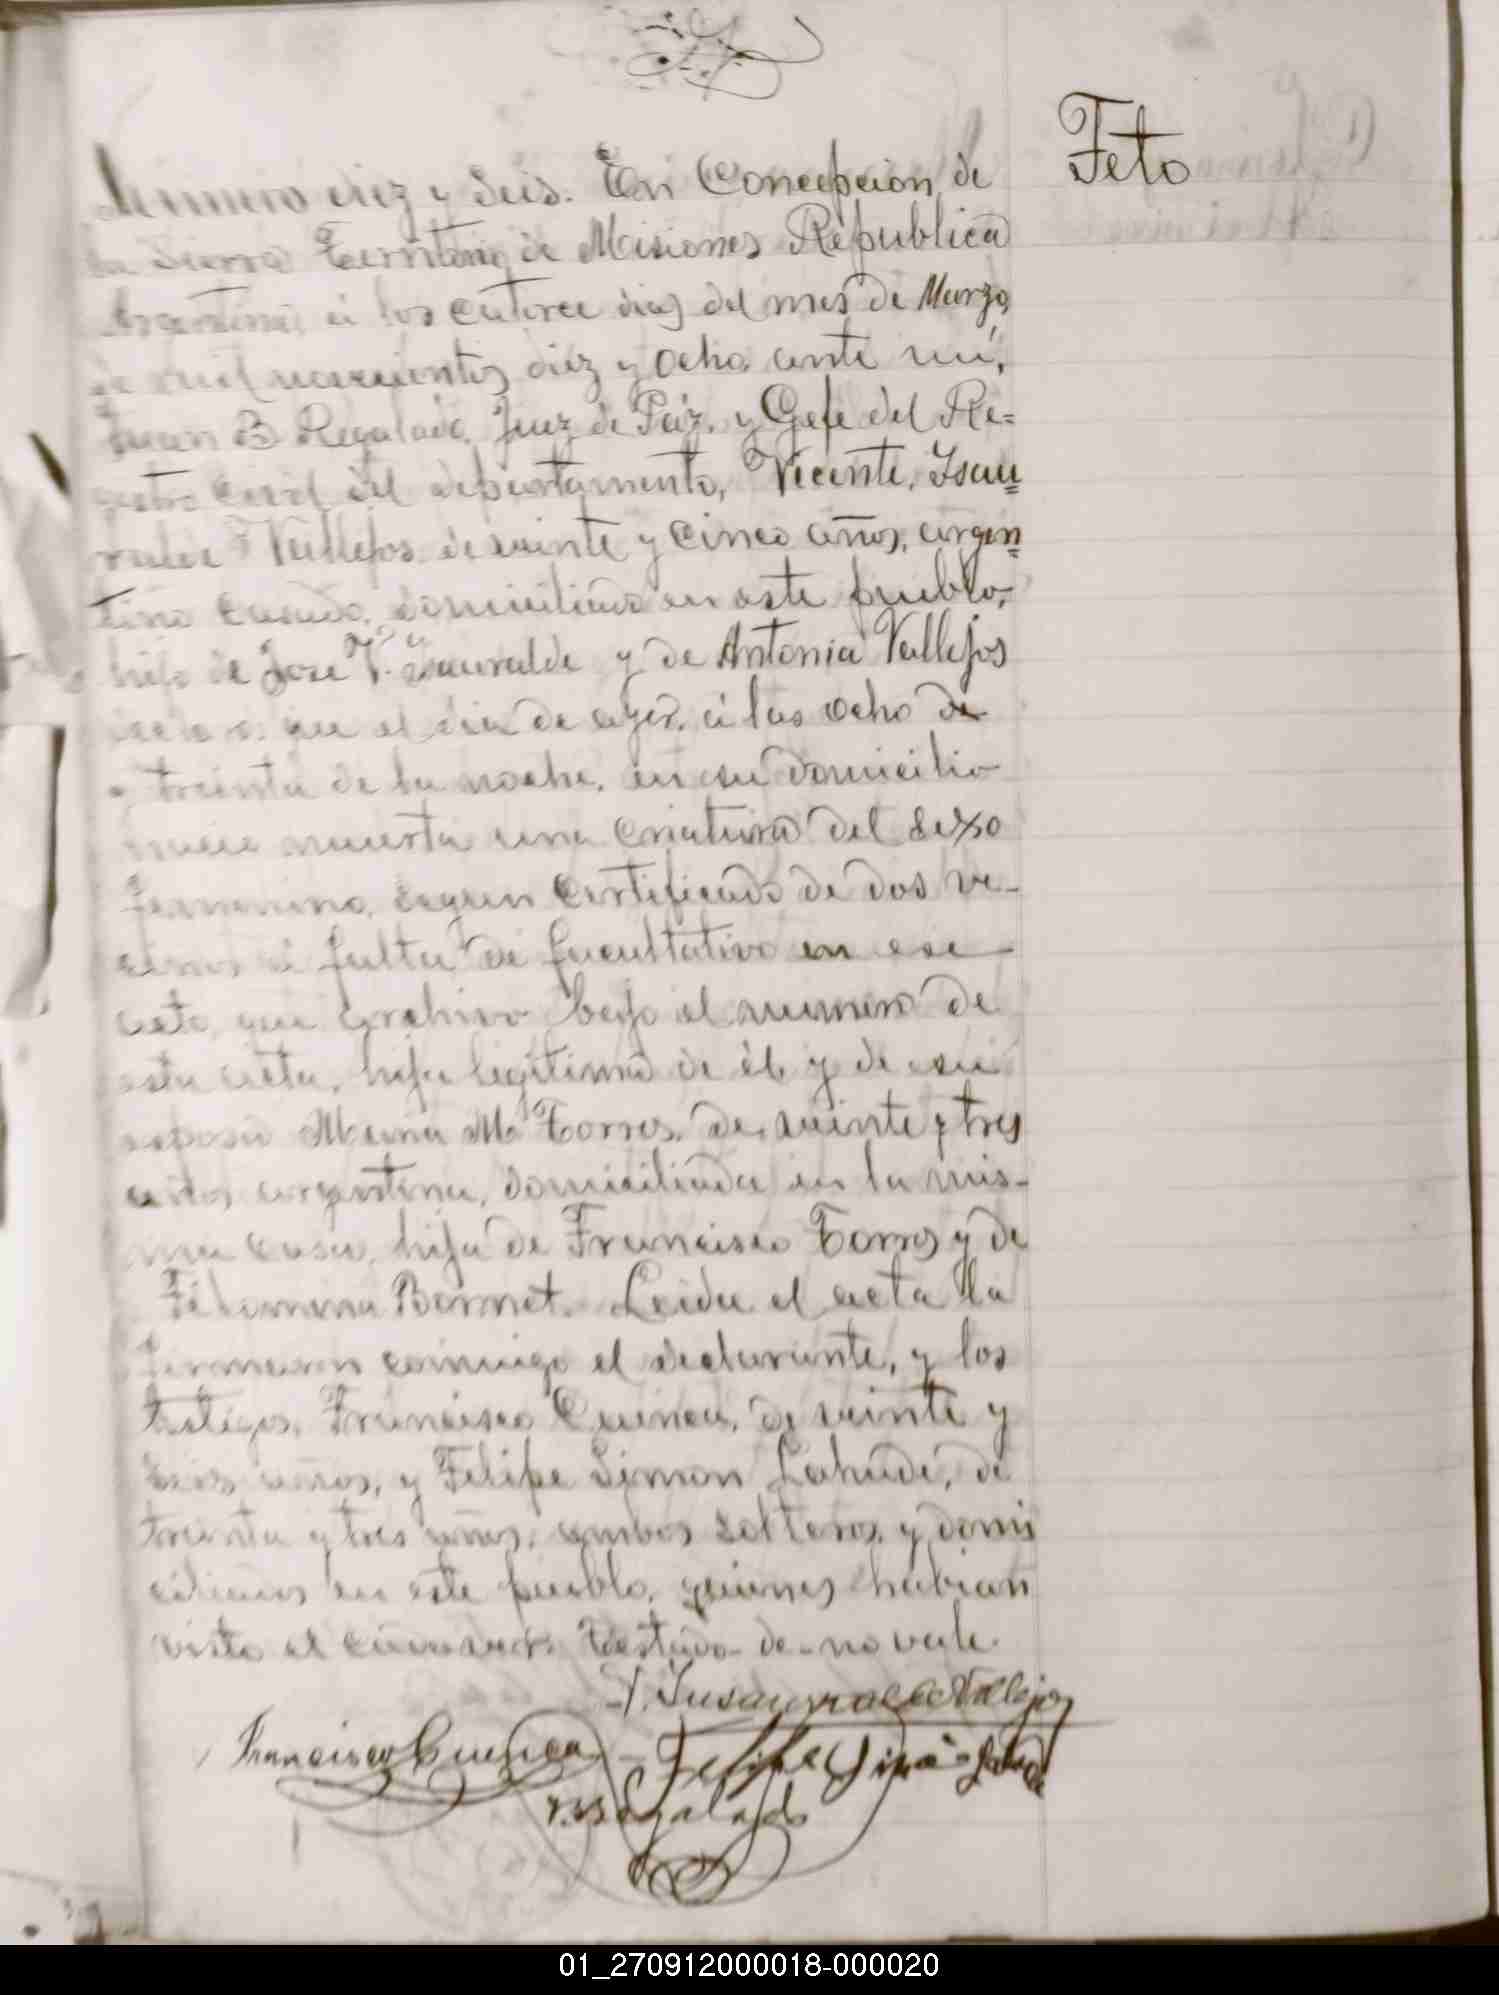 Feto
Numero diez y Seis. En Concepcion de
la Sierra Territorio de Misiones Republica
Argentina á los catorce dias del mes de Marzo,
de mil novecientos diez y ocho, ante mi,
Juan B Regalado, Juez de Paz, y Gefe del Re=
gistro Civil del departamento, Vicente, Isau=
ralde Vallejos, de veinte y cinco años, argen=
tino casado, domiciliado en este pueblo,
hijo de José V. Isauralde y de Antonia Vallejos
declaró: que el dia de ayer, á las ocho de
y treinta de la noche, en su domicilio
nació muerta una criatura del sexo
femenino, segun certificado de dos ve-
cinos á falta de facultativo en ese
acto, que archivo bajo el numero de
esta acta, hija legitima de él y de su
esposa Maria M. Torres, de veinte y tres
años argentina, domiciliada en la mis-
ma casa, hija de Francisco Torres y de
Filomena Bernet. Leida el acta la
firmaron conmigo el declarante, y los
testigos, Francisco Cuenca, de veinte y
seis años, y Felipe Simon Lahude, de
treinta y tres años, ambos solteros, y domi
ciliados en este pueblo, quienes habian
visto el cadaver. Testado- de- no vale.
V. Isauralde Vallejos
Francisco Cuenca Felipe Simón
J. B. Regalado
01_270912000018-000020